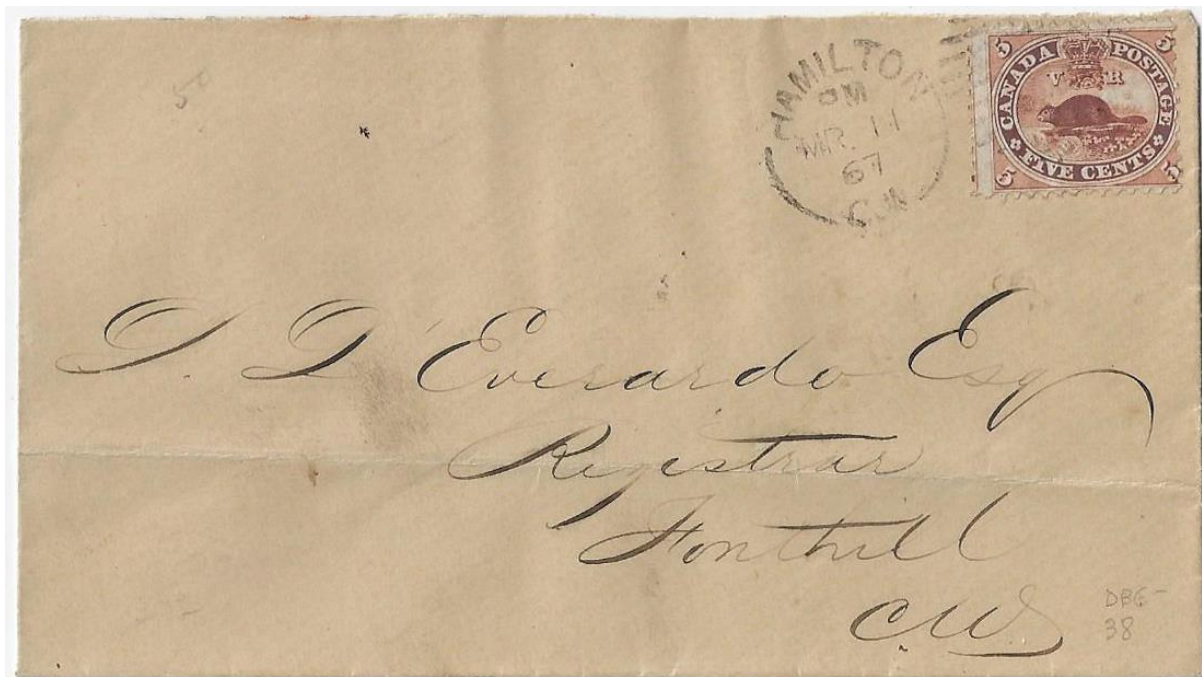 5
HAMILTON
PM
MR 11
67
C.W.
5 5
CANADA POSTAGE
V R
FIVE CENTS
5 5
D. D'Everardo Esq
Registrar
Fonthill
C.W.
DBE-
38